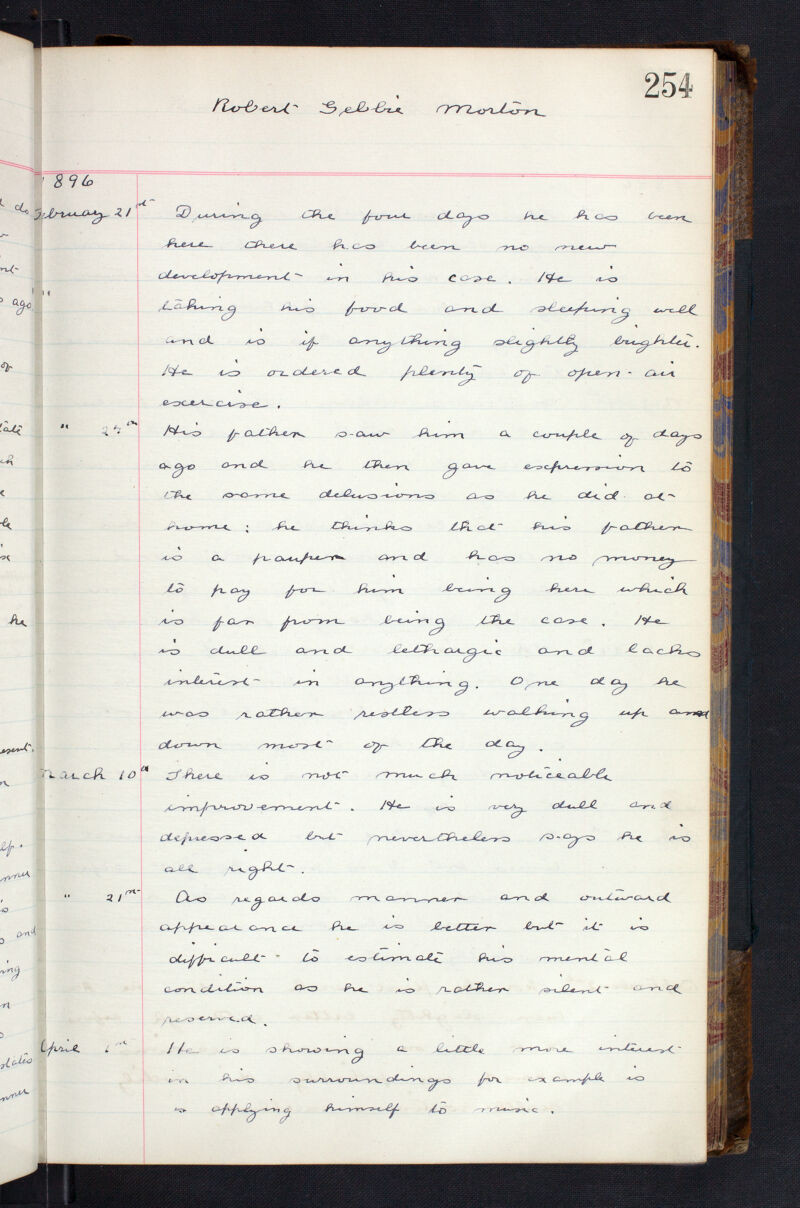 254
Robert Gebbie Morton
1896
February 21st During the four days he has been
here there has been no new
development in his case. He is
taking his food and sleeping well
and is if anything slightly brighter.
He is ordered plenty of open-air
exercise.
" His father saw him a couple of days
ago and he then gave expression to
the same delusions as he did at
home: he thinks that his father
is a pauper and has no money
to pay for him being here which
is far from being the case. He
is dull and lethargic and lacks
interest in anything. One day he
was rather restless walking up and
down most of the day.
March 10th There is not much noticeable
improvement. He is very dull and
depressed but nevertheless says he is
all right.
" 21st As regards manner and outward
appearance he is better but it is
difficult to estimate his mental
condition as he is rather silent and
reserved.
April He is showing a little more interest
in his surroundings for example is
is applying himself to music.